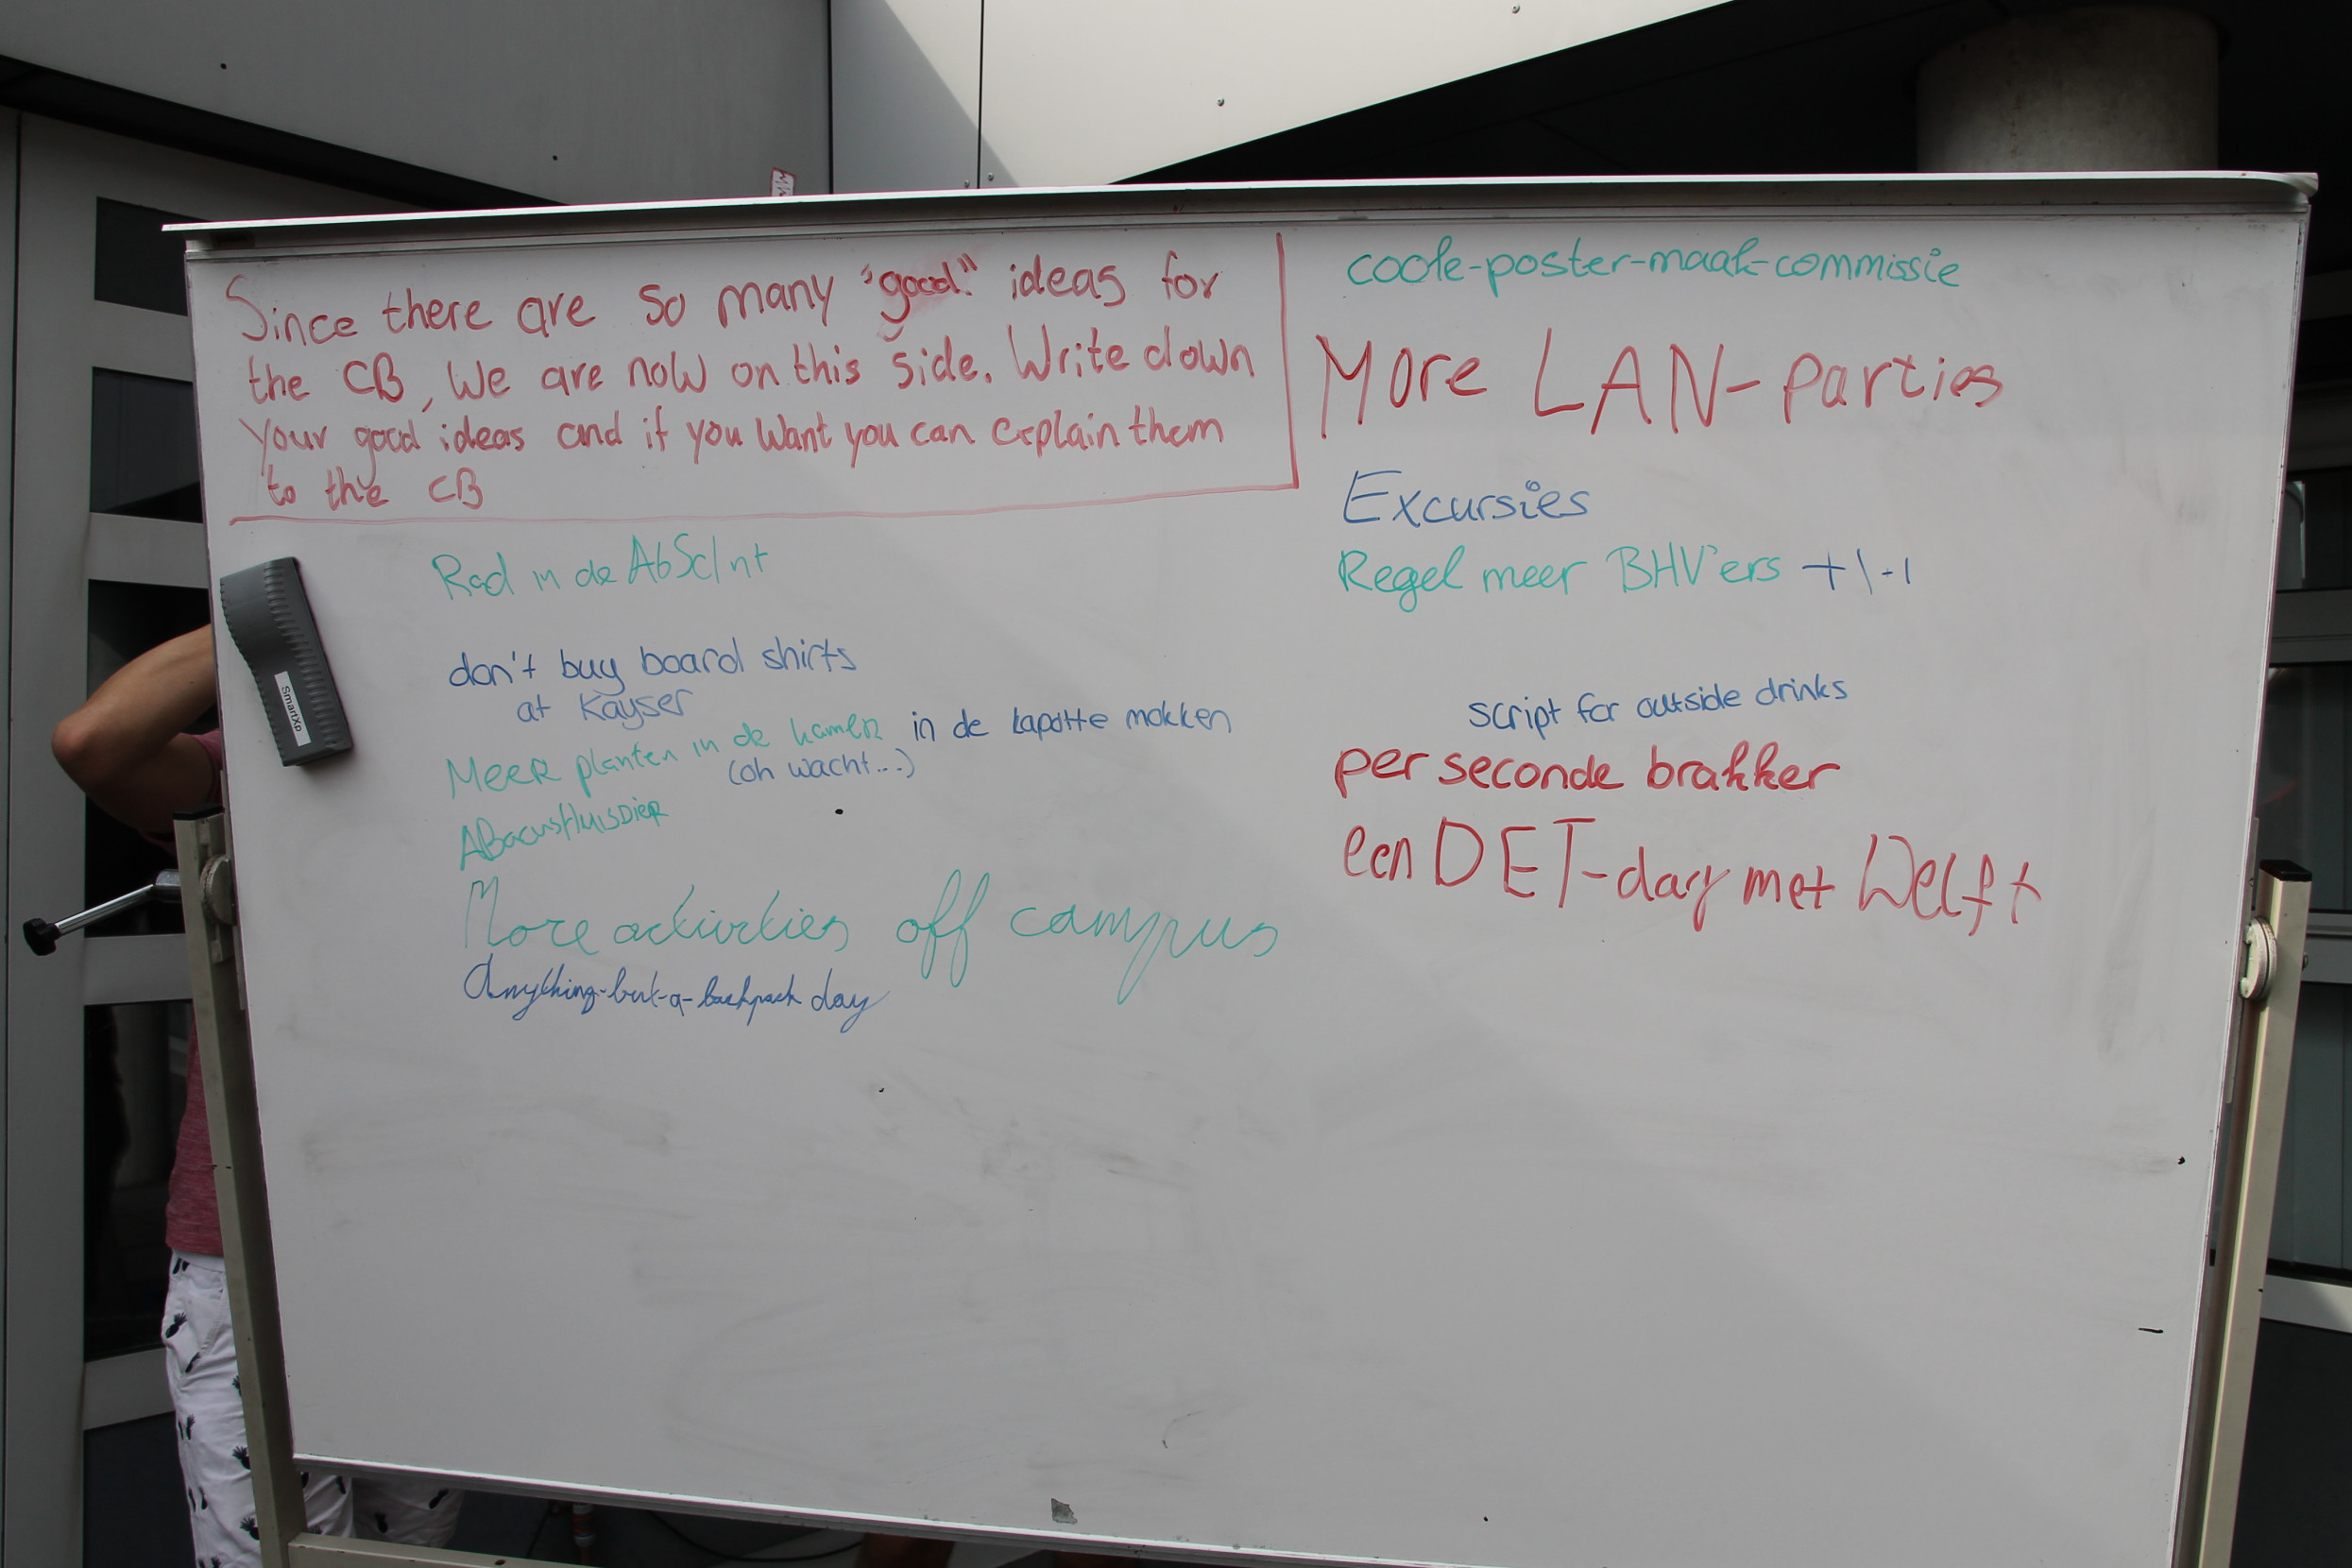 Since there are so many "good" ideas for
the CB, We are now on this side. Write down
Your good ideas and if you want you can explain them
to the CB
SmartXp
Rad in de AbScInt
don't buy board shirts
at Kayser
Meer planten in de kamer in de kapotte mokken
(oh wacht...)
ABacusHuisDier
More activities off campus
Anything-but-a-backpack day
coole-poster-maak-commissie
More LAN-parties
Excursies
Regel meer BHV'ers +1 -1
script for outside drinks
per seconde brakker
een DET-day met Delft